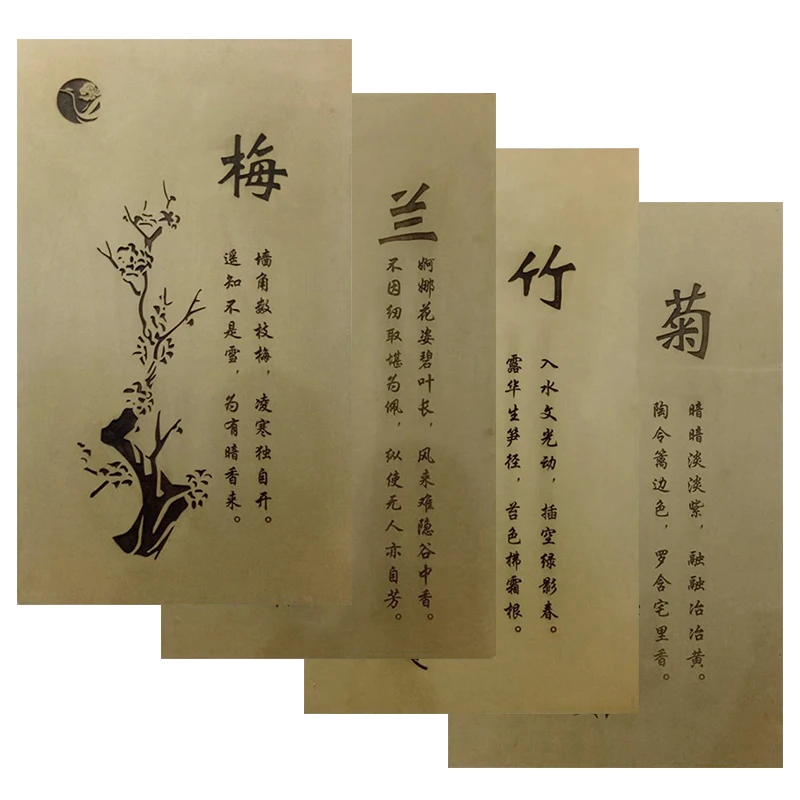 梅
墙角数枝梅，凌寒独自开。
遥知不是雪，为有暗香来。
兰
婀娜花姿碧叶长，风来难隐谷中香。
不因纫取堪为佩，纵使无人亦自芳。
竹
入水文光动，插空绿影春。
露华生笋径，苔色拂霜根。
菊
暗暗淡淡紫，融融冶冶黄。
陶令篱边色，罗含宅里香。